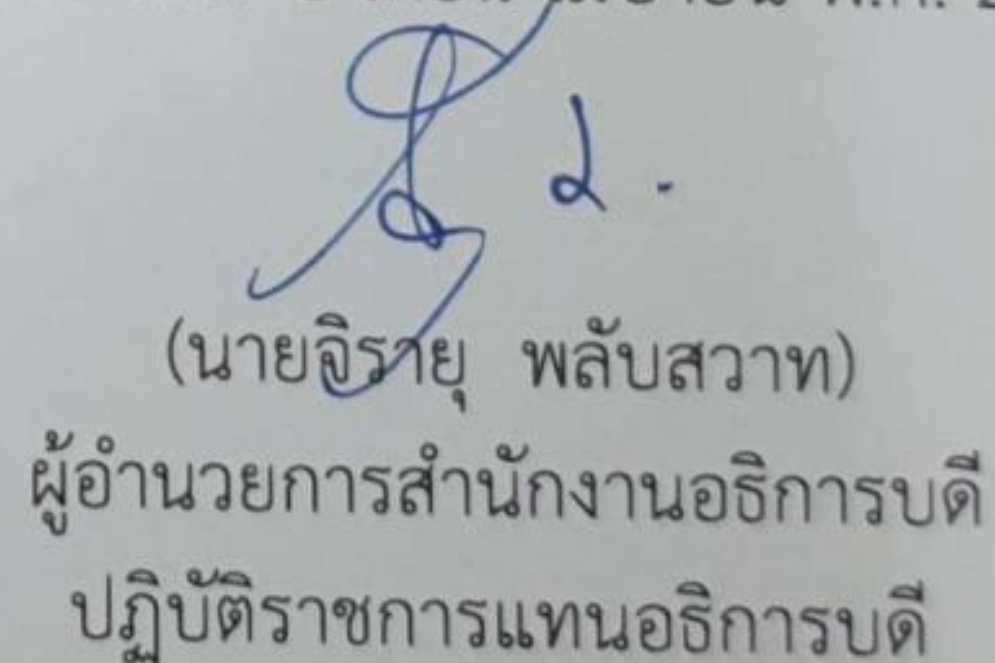 (นายจิรายุ พลับสวาท)
ผู้อำนวยการสำนักงานอธิการบดี
ปฏิบัติราชการแทนอธิการบดี